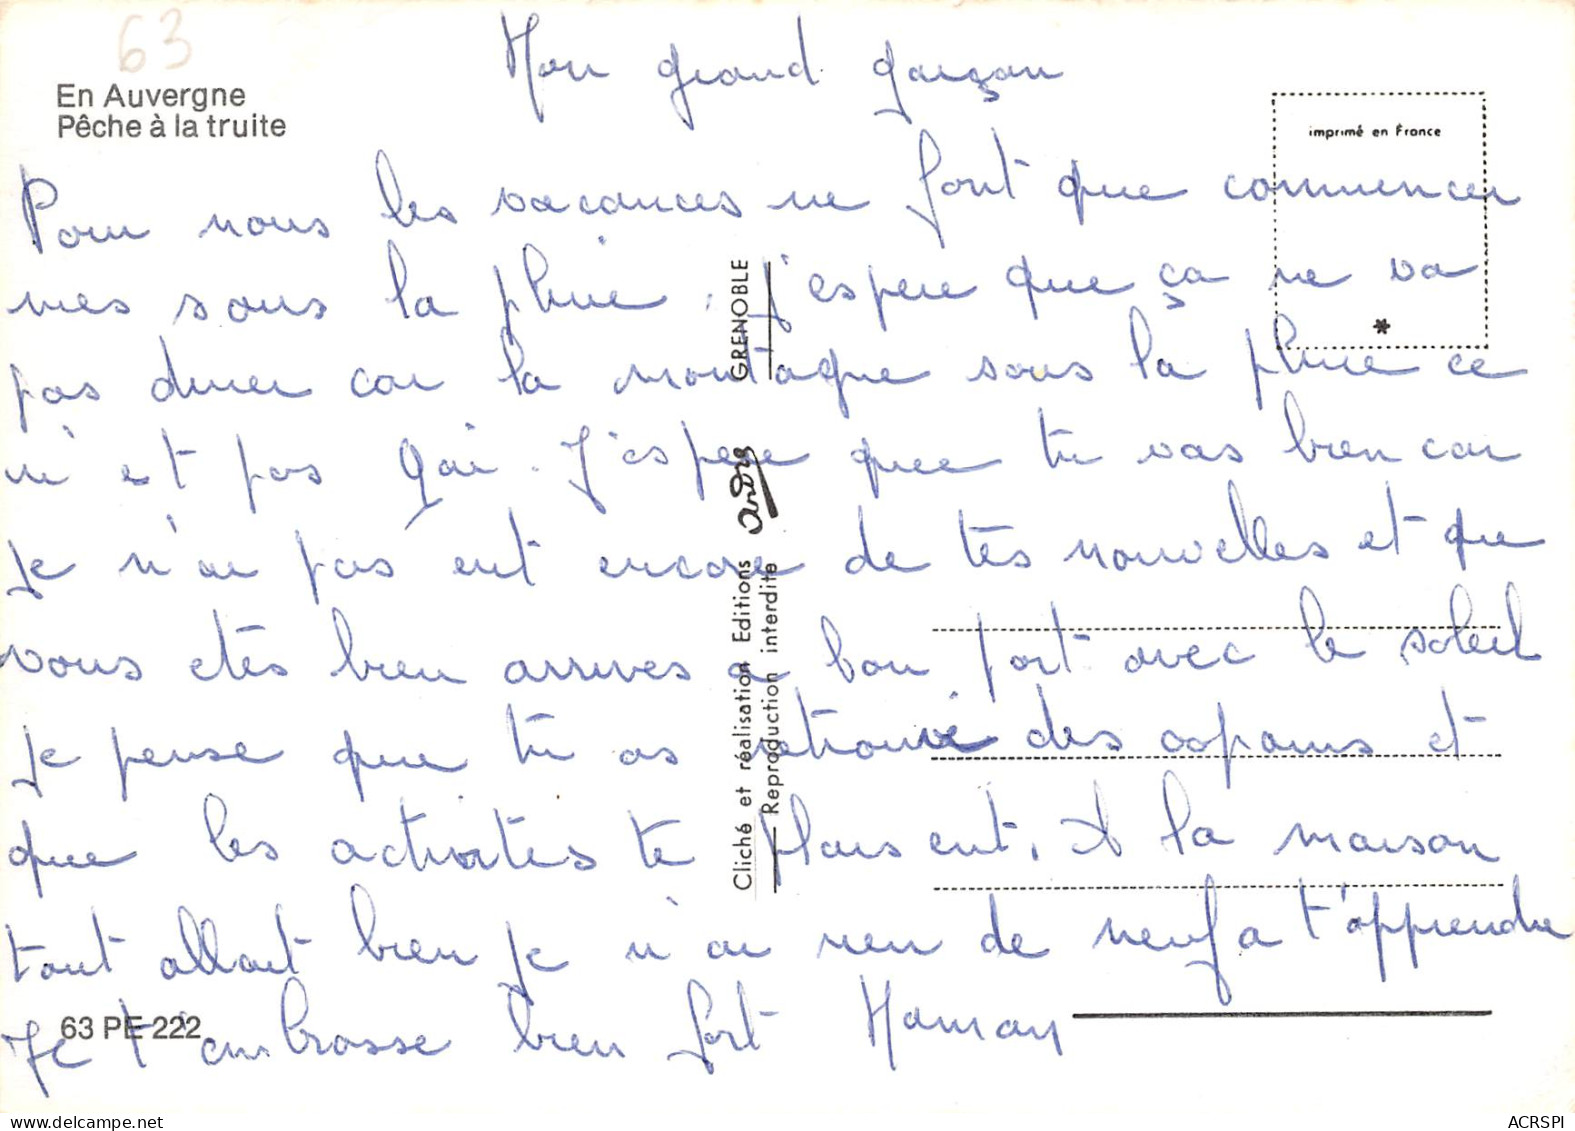 63
En Auvergne
Pêche à la truite
imprimé en France
Mon grand garçon
Pour nous les vacances ne font que commencer
mes sous la pluie. j'espere que ça ne va
pas durer car la montagne sous la pluie ce
n'est pas gai. J'espere que tu vas bien car
je n'ai pas eut encore de tes nouvelles et que
vous etes bien arrives a bon port avec le soleil
je pense que tu as retrouvé des copains et
que les activites te plaisent. A la maison
tout allait bien je n'ai rien de neuf a t'apprendre
Je t'embrasse bien fort Maman
63 PE 222
Cliché et réalisation Editions André GRENOBLE
Reproduction interdite
ACRSPI